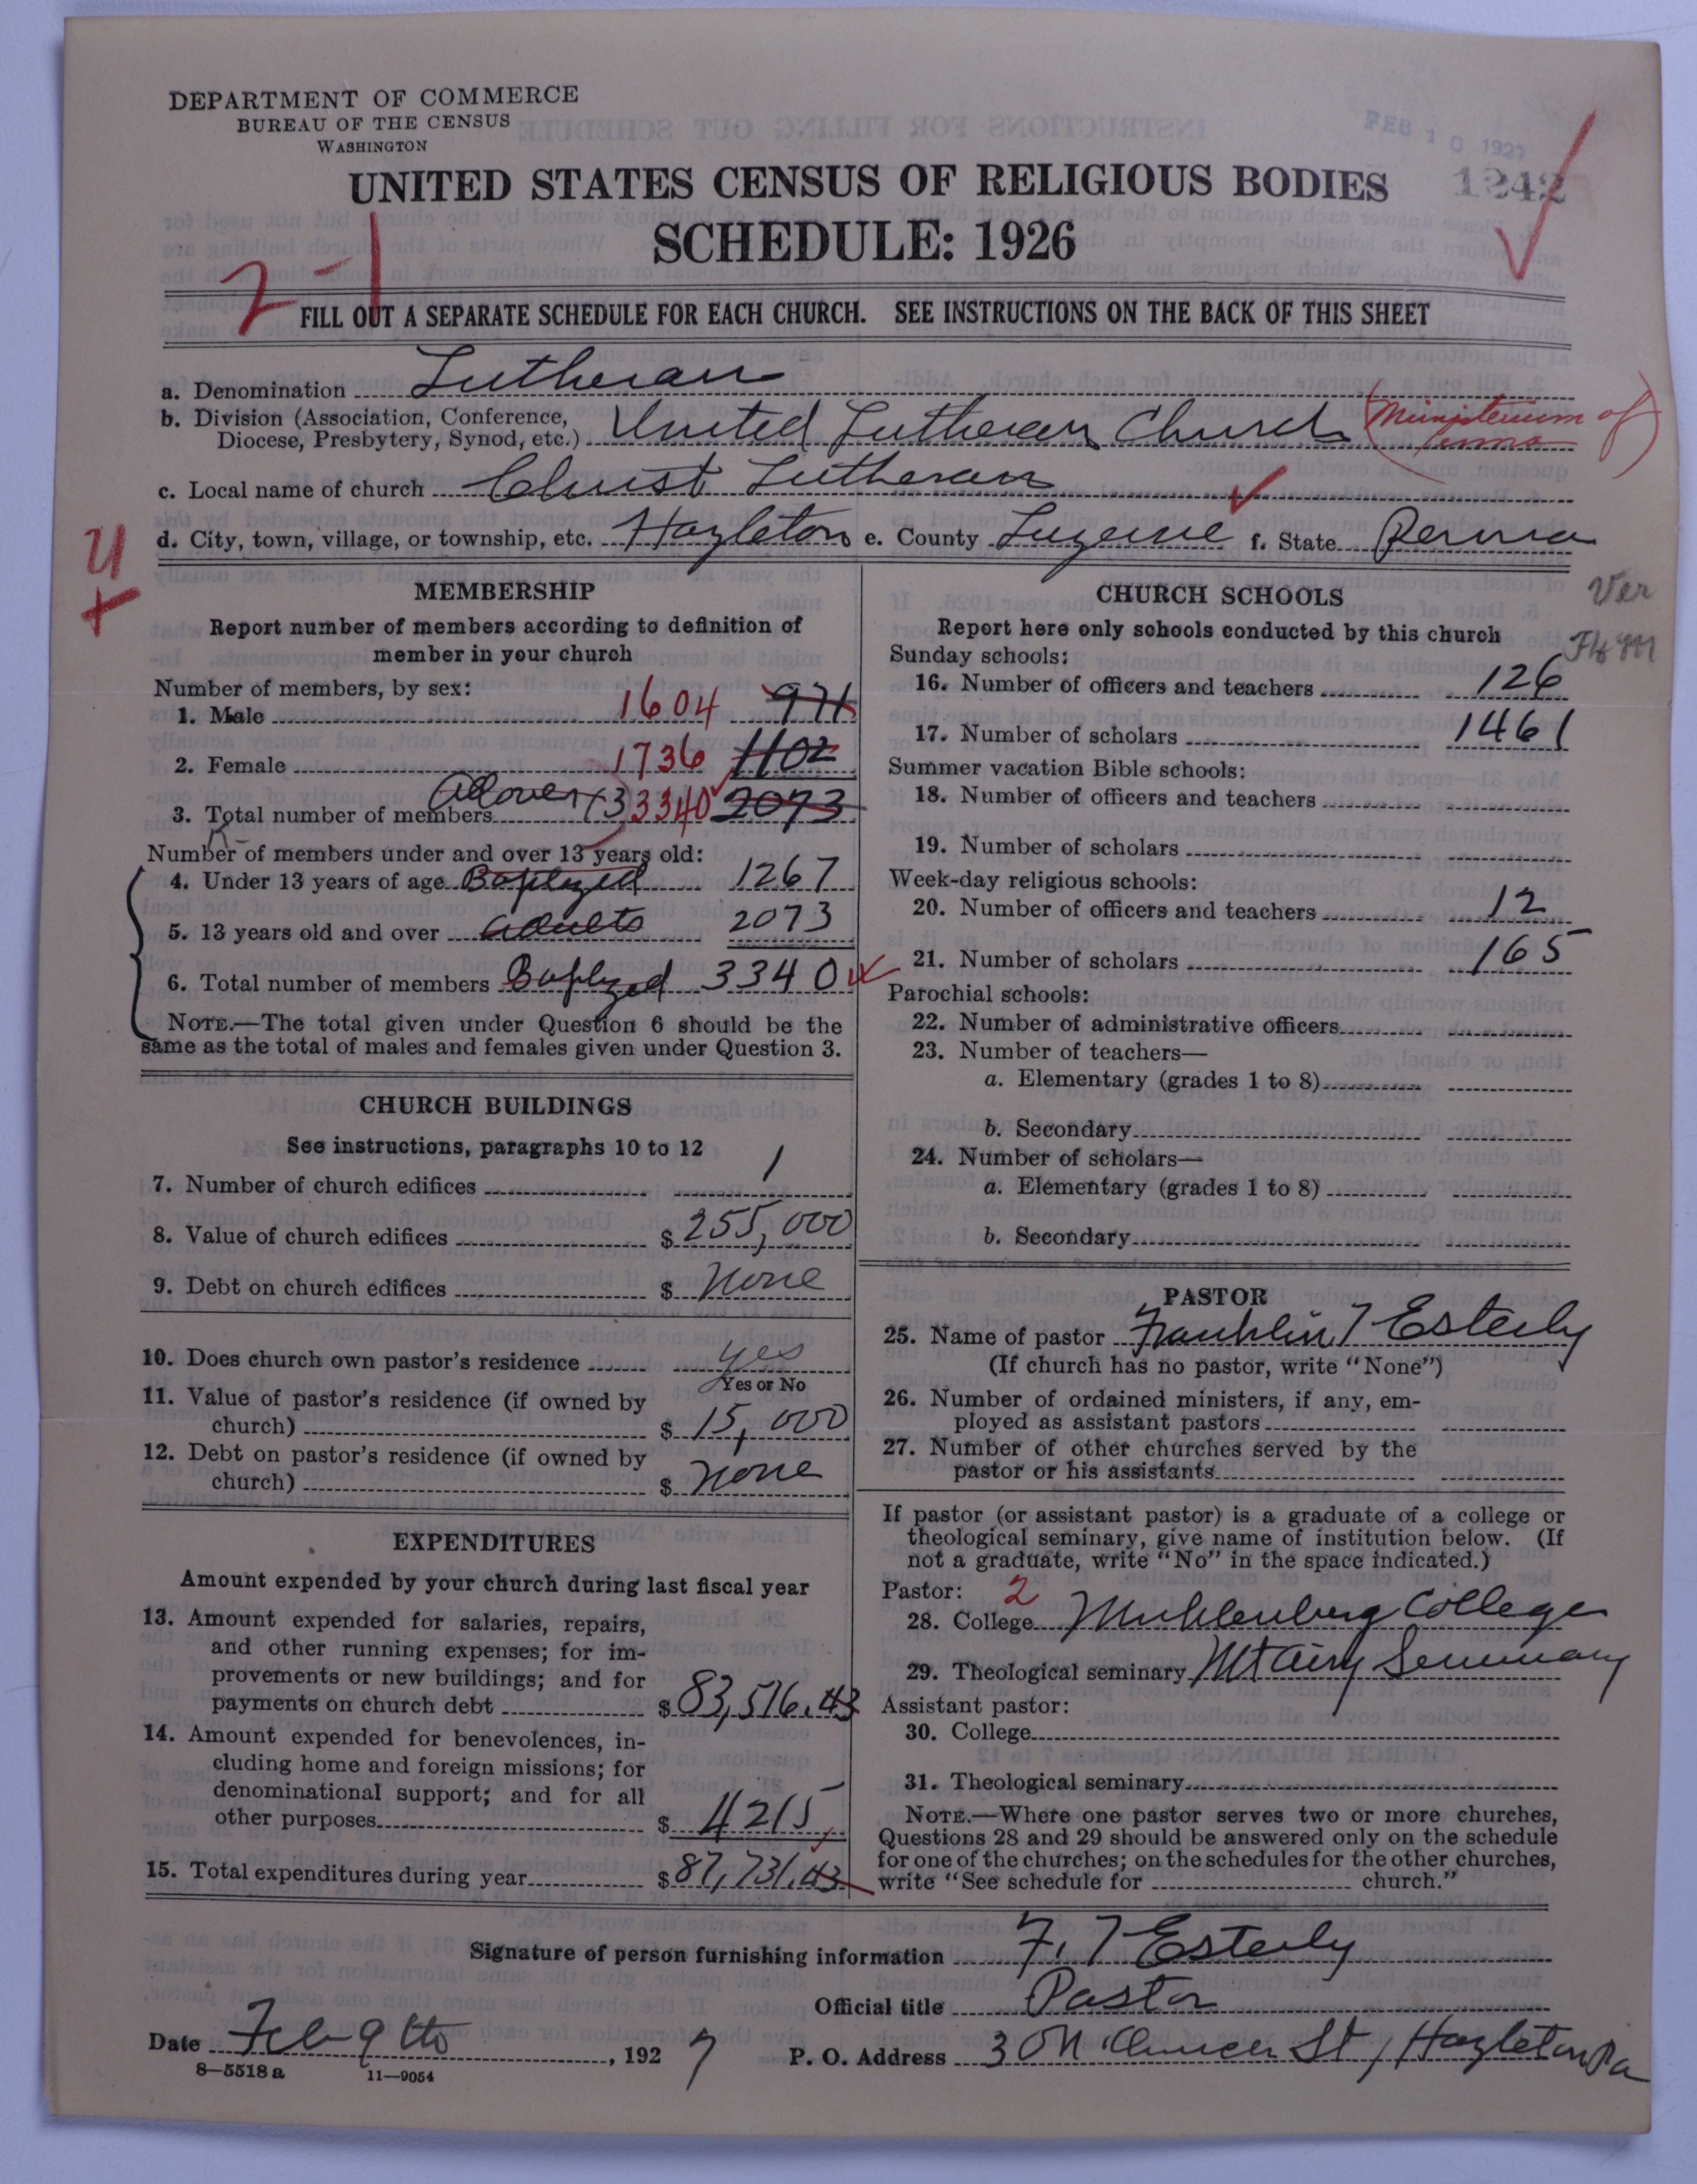 DEPARTMENT OF COMMERCE
BUREAU OF THE CENSUS
WASHINGTON
FEB 10 1927
1242
UNITED STATES CENSUS OF RELIGIOUS BODIES
SCHEDULE: 1926
2-1
FILL OUT A SEPARATE SCHEDULE FOR EACH CHURCH. SEE INSTRUCTIONS ON THE BACK OF THIS SHEET
a. Denomination Lutheran
b. Division (Association, Conference,
Diocese, Presbytery, Synod, etc.) United Lutheran Church (Ministerium of
c. Local name of church Christ Lutheran
d. City, town, village, or township, etc. Hazleton e. County Luzerne f. State Penna
MEMBERSHIP
Report number of members according to definition of
member in your church
Number of members, by sex:
1. Male 1604 971
2. Female 1736 1102
3. Total number of members above (13) 3340 2073
Number of members under and over 13 years old:
4. Under 13 years of age Baptized 1267
5. 13 years old and over adults 2073
6. Total number of members Baptized 3340
NOTE.—The total given under Question 6 should be the
same as the total of males and females given under Question 3.
CHURCH BUILDINGS
See instructions, paragraphs 10 to 12
7. Number of church edifices 1
8. Value of church edifices $ 255,000
9. Debt on church edifices $ None
10. Does church own pastor's residence yes
Yes or No
11. Value of pastor's residence (if owned by
church) $ 15,000
12. Debt on pastor's residence (if owned by
church) $ None
EXPENDITURES
Amount expended by your church during last fiscal year
13. Amount expended for salaries, repairs,
and other running expenses; for im-
provements or new buildings; and for
payments on church debt $ 83,516.43
14. Amount expended for benevolences, in-
cluding home and foreign missions; for
denominational support; and for all
other purposes $ 4215
15. Total expenditures during year $ 87,731.43
CHURCH SCHOOLS
Ver
Report here only schools conducted by this church
Sunday schools:
16. Number of officers and teachers 126
17. Number of scholars 1461
Summer vacation Bible schools:
18. Number of officers and teachers
19. Number of scholars
Week-day religious schools:
20. Number of officers and teachers 12
21. Number of scholars 165
Parochial schools:
22. Number of administrative officers
23. Number of teachers—
a. Elementary (grades 1 to 8)
b. Secondary
24. Number of scholars—
a. Elementary (grades 1 to 8)
b. Secondary
PASTOR
25. Name of pastor Franklin T Esterly
(If church has no pastor, write "None")
26. Number of ordained ministers, if any, em-
ployed as assistant pastors
27. Number of other churches served by the
pastor or his assistants
If pastor (or assistant pastor) is a graduate of a college or
theological seminary, give name of institution below. (If
not a graduate, write "No" in the space indicated.)
Pastor: 2
28. College Muhlenberg College
29. Theological seminary Mt Airy Seminary
Assistant pastor:
30. College
31. Theological seminary
NOTE.—Where one pastor serves two or more churches,
Questions 28 and 29 should be answered only on the schedule
for one of the churches; on the schedules for the other churches,
write "See schedule for church."
Signature of person furnishing information F. T Esterly
Official title Pastor
Date Feb 9th, 1927
P. O. Address St, Hazleton Pa
8—5518 a 11—9054